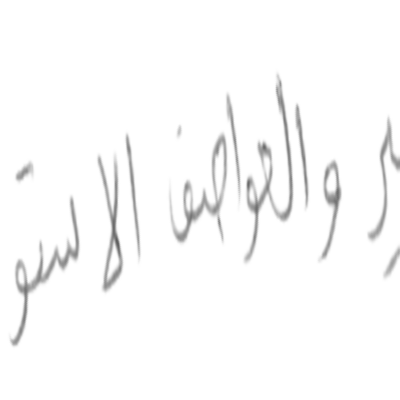 والعواصف الاستو